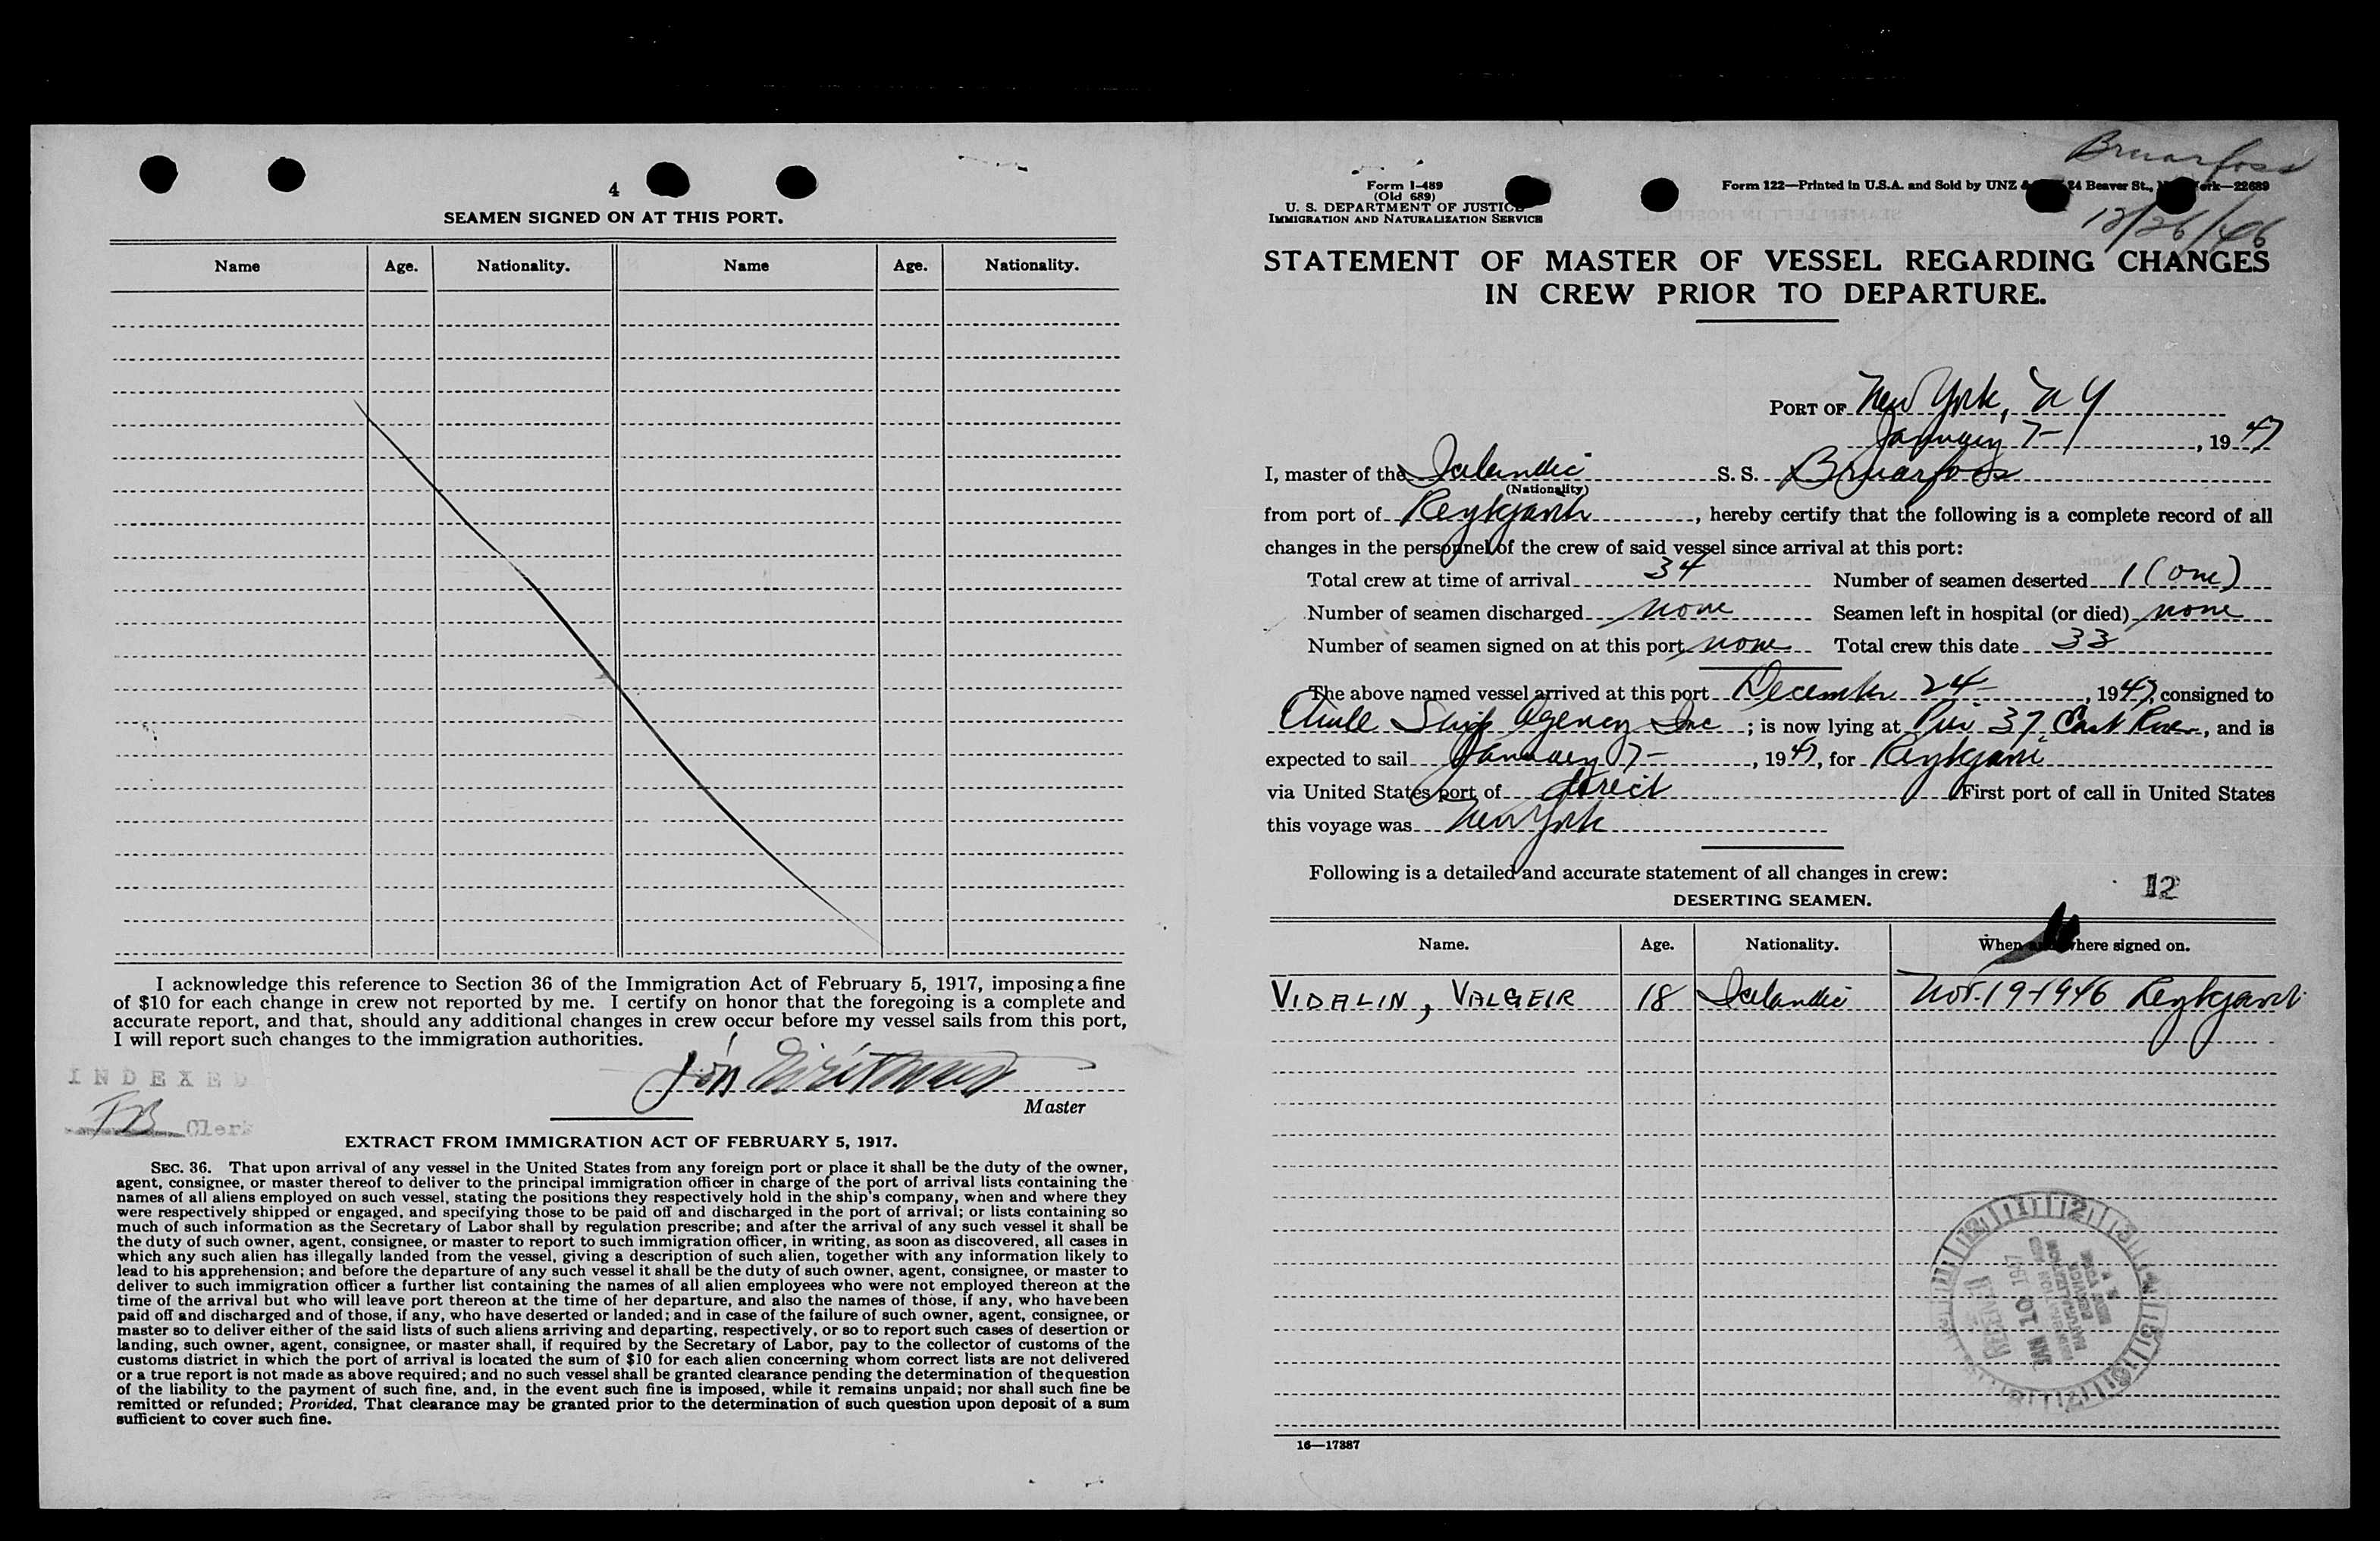 4
SEAMEN SIGNED ON AT THIS PORT.
Name Age. Nationality. Name Age. Nationality.
I acknowledge this reference to Section 36 of the Immigration Act of February 5, 1917, imposing a fine
of $10 for each change in crew not reported by me. I certify on honor that the foregoing is a complete and
accurate report, and that, should any additional changes in crew occur before my vessel sails from this port,
I will report such changes to the immigration authorities.
INDEXED
Jón
Master
Clerk
EXTRACT FROM IMMIGRATION ACT OF FEBRUARY 5, 1917.
SEC. 36. That upon arrival of any vessel in the United States from any foreign port or place it shall be the duty of the owner,
agent, consignee, or master thereof to deliver to the principal immigration officer in charge of the port of arrival lists containing the
names of all aliens employed on such vessel, stating the positions they respectively hold in the ship's company, when and where they
were respectively shipped or engaged, and specifying those to be paid off and discharged in the port of arrival; or lists containing so
much of such information as the Secretary of Labor shall by regulation prescribe; and after the arrival of any such vessel it shall be
the duty of such owner, agent, consignee, or master to report to such immigration officer, in writing, as soon as discovered, all cases in
which any such alien has illegally landed from the vessel, giving a description of such alien, together with any information likely to
lead to his apprehension; and before the departure of any such vessel it shall be the duty of such owner, agent, consignee, or master to
deliver to such immigration officer a further list containing the names of all alien employees who were not employed thereon at the
time of the arrival but who will leave port thereon at the time of her departure, and also the names of those, if any, who have been
paid off and discharged and of those, if any, who have deserted or landed; and in case of the failure of such owner, agent, consignee, or
master so to deliver either of the said lists of such aliens arriving and departing, respectively, or so to report such cases of desertion or
landing, such owner, agent, consignee, or master shall, if required by the Secretary of Labor, pay to the collector of customs of the
customs district in which the port of arrival is located the sum of $10 for each alien concerning whom correct lists are not delivered
or a true report is not made as above required; and no such vessel shall be granted clearance pending the determination of the question
of the liability to the payment of such fine, and, in the event such fine is imposed, while it remains unpaid; nor shall such fine be
remitted or refunded; Provided, That clearance may be granted prior to the determination of such question upon deposit of a sum
sufficient to cover such fine.
Bruarfoss
Form I-489
(Old 689)
U. S. DEPARTMENT OF JUSTICE
IMMIGRATION AND NATURALIZATION SERVICE
Form 122—Printed in U.S.A. and Sold by UNZ & 24 Beaver St., —22689
12/26/46
STATEMENT OF MASTER OF VESSEL REGARDING CHANGES
IN CREW PRIOR TO DEPARTURE.
PORT OF New York, N Y
January 7-, 1947
I, master of the Icelandic S. S. Bruarfoss
(Nationality)
from port of Reykjavik, hereby certify that the following is a complete record of all
changes in the personnel of the crew of said vessel since arrival at this port:
Total crew at time of arrival 34 Number of seamen deserted 1 (one)
Number of seamen discharged none Seamen left in hospital (or died) none
Number of seamen signed on at this port none Total crew this date 33
The above named vessel arrived at this port December 24-, 1947, consigned to
Ship Agency Inc; is now lying at Pier 37, East River, and is
expected to sail January 7-, 1947, for Reykjavik
via United States port of direct First port of call in United States
this voyage was New York
Following is a detailed and accurate statement of all changes in crew:
12
DESERTING SEAMEN.
Name. Age. Nationality. When and where signed on.
VIDALIN, VALGEIR 18 Icelandic Nov. 19-1946 Reykjavik
JAN 10 1947
RECEIVED
16—17387